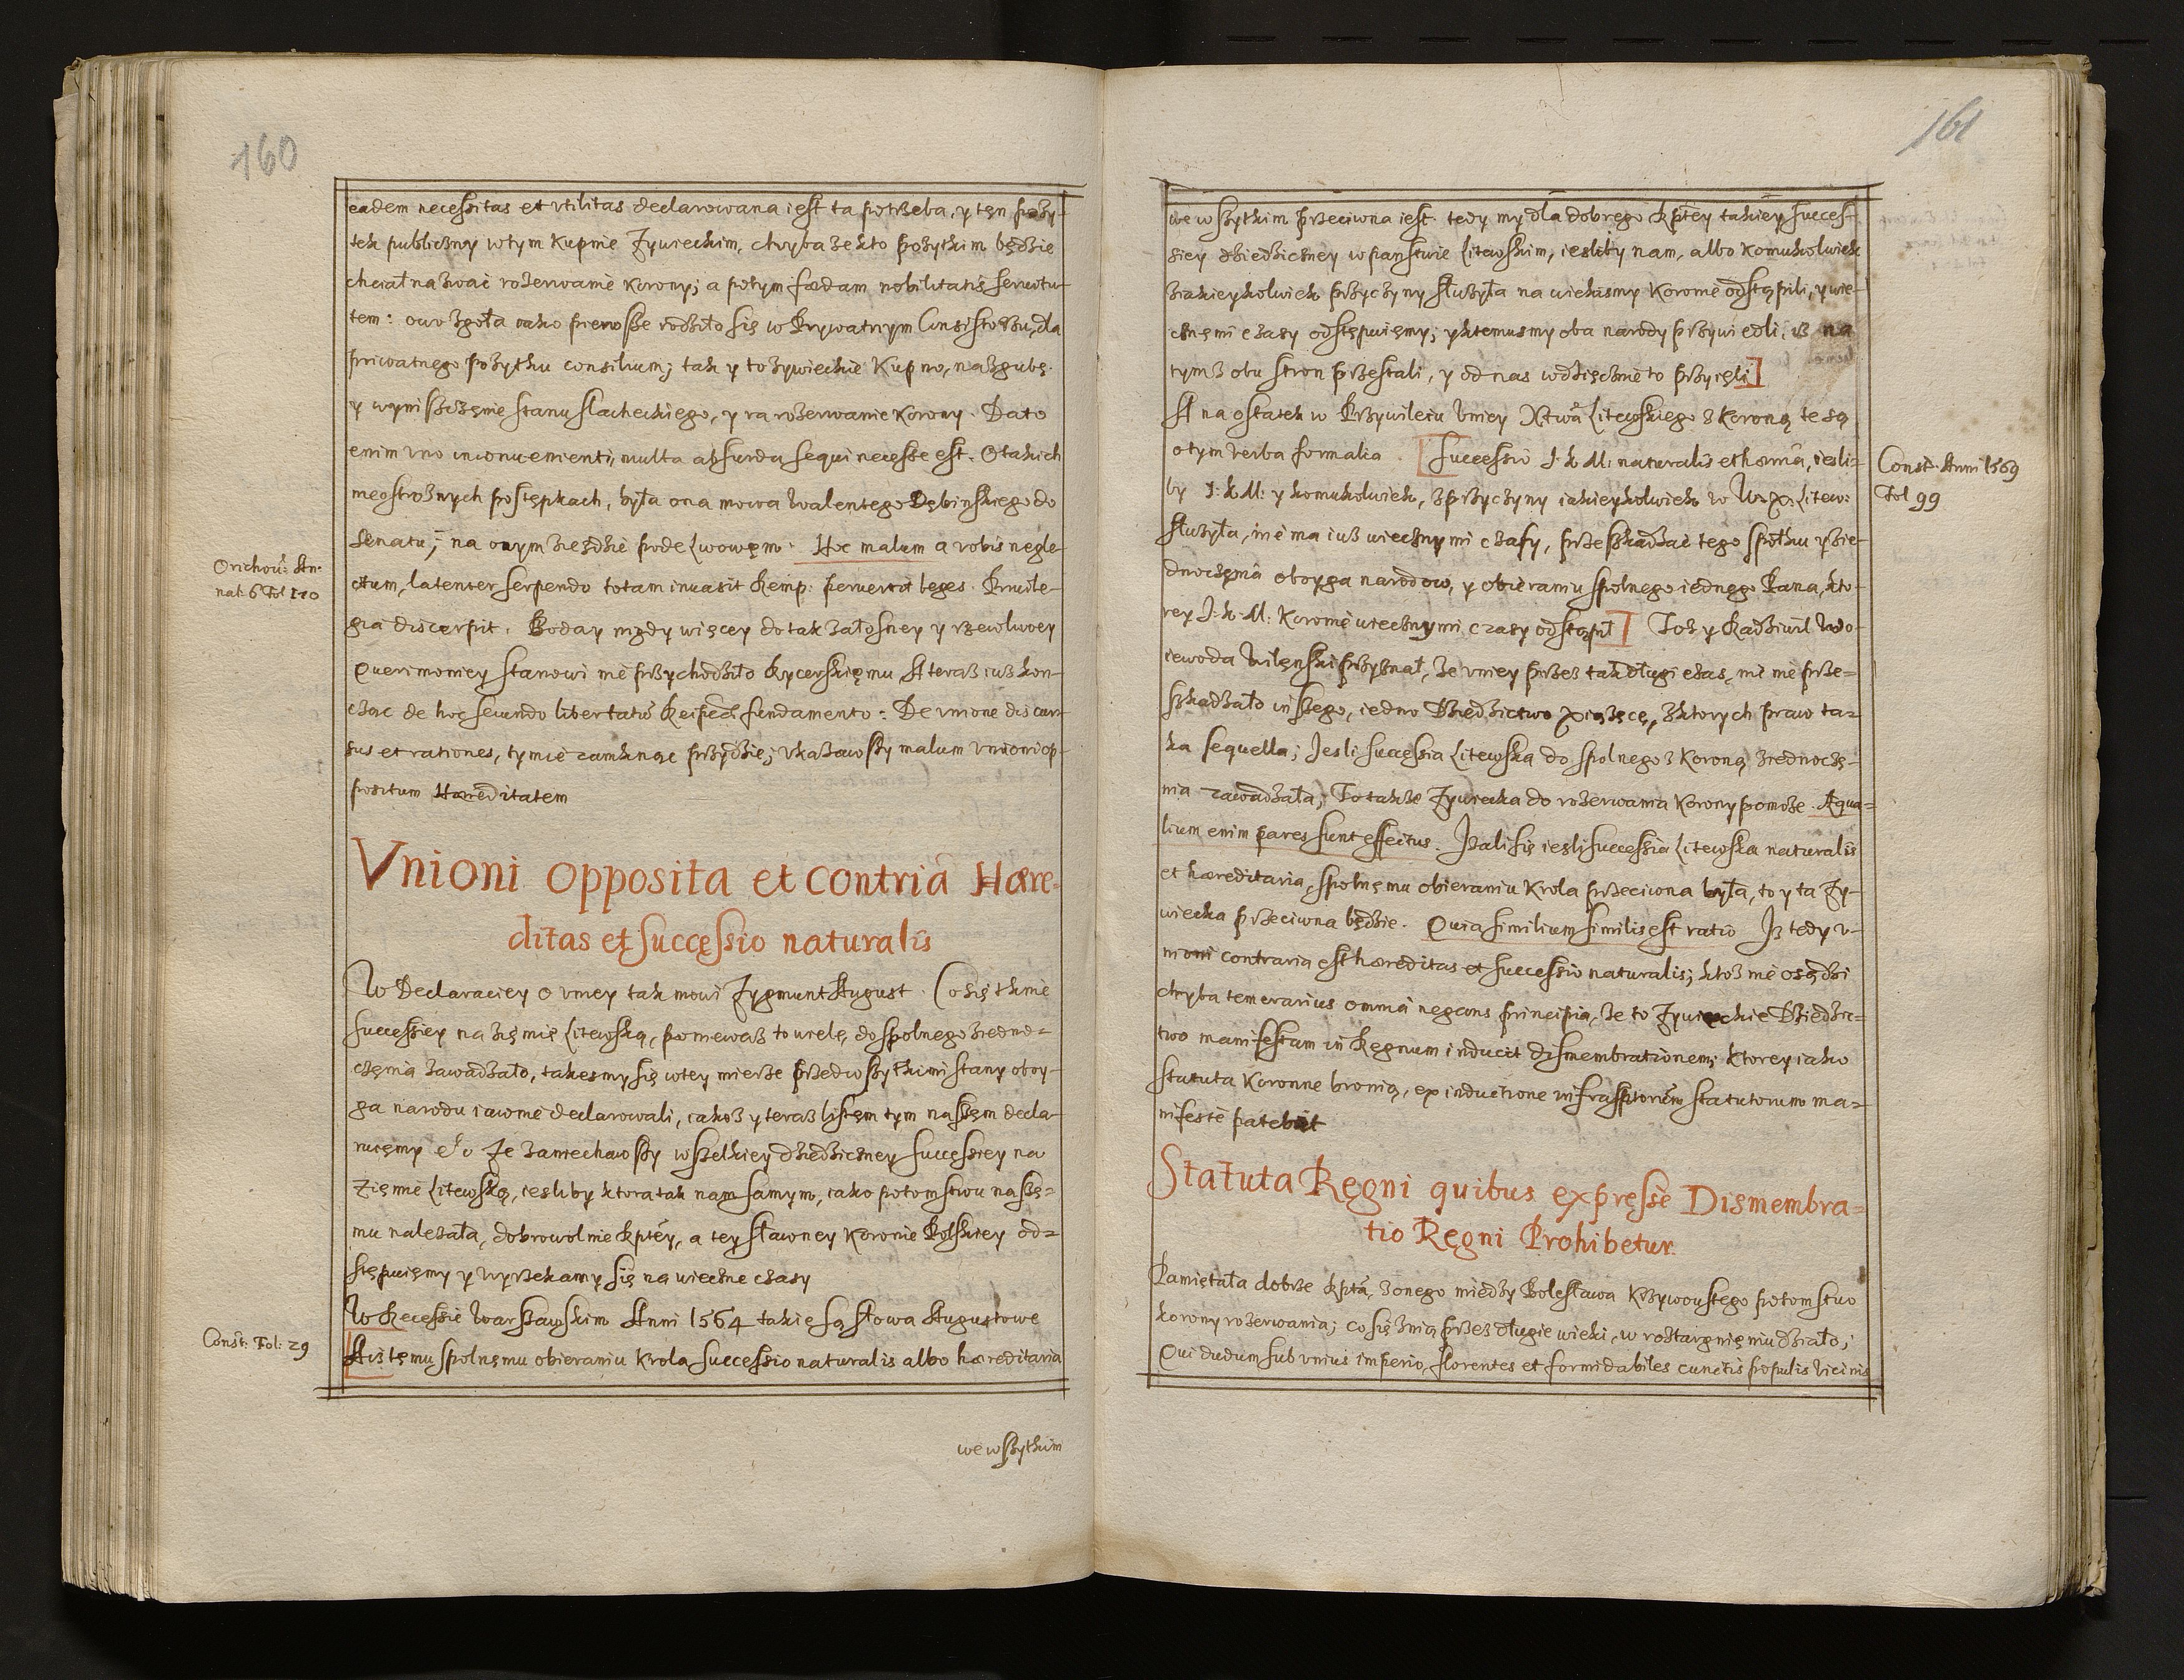 160
eadem necessitas et vtilitas declarowana iest ta potrzeba, y ten pozy-
tek publiczny wtym kupnie Zywieckim, chyba ze kto pozytkim będzie
chciał nazwac rozerwanie Korony; a potym fœdam nobilitatis seruitu-
tem: owo zgoła iako pierwsze rodziło się w Prywatnym Consistorzu, dla
priwatnego pozytku consilium; tak y to zywieckie Kupno, na zgubę
y wyniszczenie stanu slacheckiego, y na rozerwanie Korony. Dato
enim vno inconuenienti, multa absurda sequi necesse est. O takich
nieostroznych postępkach, była ona mowa Walentego Dębinskiego do
Senatu, na onym zieździe pode Lwowem. Hoc malum a vobis negle-
Orichou: An-
nal: 6 Fol 110
ctum, latenter serpendo totam inuasit Remp: peruertit leges. Priuile-
gia discerpit. Boday nigdy więcey do tak załosney y rzewliwey
Querimoniey stanowi nie przychodziło Rycerskiemu A teraz iuz kon-
cząc de hoc secundo libertatũ Reipcae fundamento: De vnione discur-
sus et rationes, tymie zamknąc przydzie; vkazawszy malum vnioni op-
positum Hæreditatem
Vnioni opposita et contria Hære-
ditas et successio naturalis
W Declaraciey o vniey tak mowi Zygmunt August. Co się tknie
successiey na ziemię Litewską, poniewaz to wiele, do spolnego ziedno-
czenia zawadzało, takesmy się wtey mierze przed wszytkimi stany oboy-
ga narodu iawnie declarowali, iakoz y teraz listem tym naszem decla-
ruiemy etc Ze zaniechawszy wszelkiey dziedziczney successiey na
Ziemie Litewską, iesliby ktora tak nam samym, iako potomstwu nasze-
mu nalezała, dobrowolnie Rptey, a tey sławney Koronie Polskiey od-
stępuiemy y wyrzekamy się na wieczne czasy
W Recessie Warszawskim Anni 1564 takie są słowa Augustowe
Const: Fol: 29
A iz temu spolnemu obieraniu Krola successio naturalis albo hæreditaria
we wszytkim
161
we wszytkim przeciwna iest. tedy my dla dobrego Rptey takiey succes-
siey dziedziczney w panstwie Litewskim, iesliby nam, albo komukolwiek
z iakieykolwiek przyczyny słuzyła na wiekismy Koronie odstąpili, y wie-
cznemi czasy odstępuiemy; y ktemusmy oba narody przywiedli, iz na
tym z obu stron przestali, y od nas wdzięcznie to przyięli
A na ostatek w Przywileiu Vniey X°twa Litewskiego z Koroną te są
o tym verba formalia. Successio J. K. M: naturalis et hæria, iesli-
Const. Anni 1569
Fol 99
by J: K M: y komukolwiek, z przyczyny iakieykolwiek w W. X. Litew:
słuzyła, nie ma iuz wiecznymi czasy, przeszkadzac tego społku y zie-
dnoczenia oboyga narodow, y obieraniu spolnego iednego Pana, kto-
rey J. K. M: Koronie wiecznymi czasy odstąpił Toz y Radziwił Wo-
iewoda Wilenski przyznał, ze vniey przez tak długi czas, nic nie prze-
szkadzało inszego, iedno Dziedzictwo Xiązęce, z ktorych praw ta-
ka sequella; Jesli successia Litewska do spolnego z Koroną ziednocze-
nia zawadzała; To takze Zywiecka do rozerwania Korony pomoze. Æqua-
lium enim pares sunt effectus. Izali się iesli successia Litewska naturalis
et hæreditaria, spolnemu obieraniu Krola przeciwna była, to y ta Zy-
wiecka przeciwna będzie. Quia similium similis est ratio Jz tedy v-
nioni contraria est hæreditas et successio naturalis; ktoz nie osądzi
chyba temerarius omnia negans principia, ze to Zywieckie Dziedzic-
two manifestam in Regnum inducit dismembrationem; ktorey iako
statuta Koronne bronią, ex inductione infrasptorum statutorum ma-
nifeste patebit
Statuta Regni quibus expresse Dismembra-
tio Regni Prohibetur
Pamiętała dobrze Rpta, z onego między Bolesława Krzywoustego potomstwo
Korony rozerwania; co się z nią przez długie wieki, w roztargnieniu działo;
Qui dudum sub vnius imperio, florentes et formidabiles cunctis populis vicinis